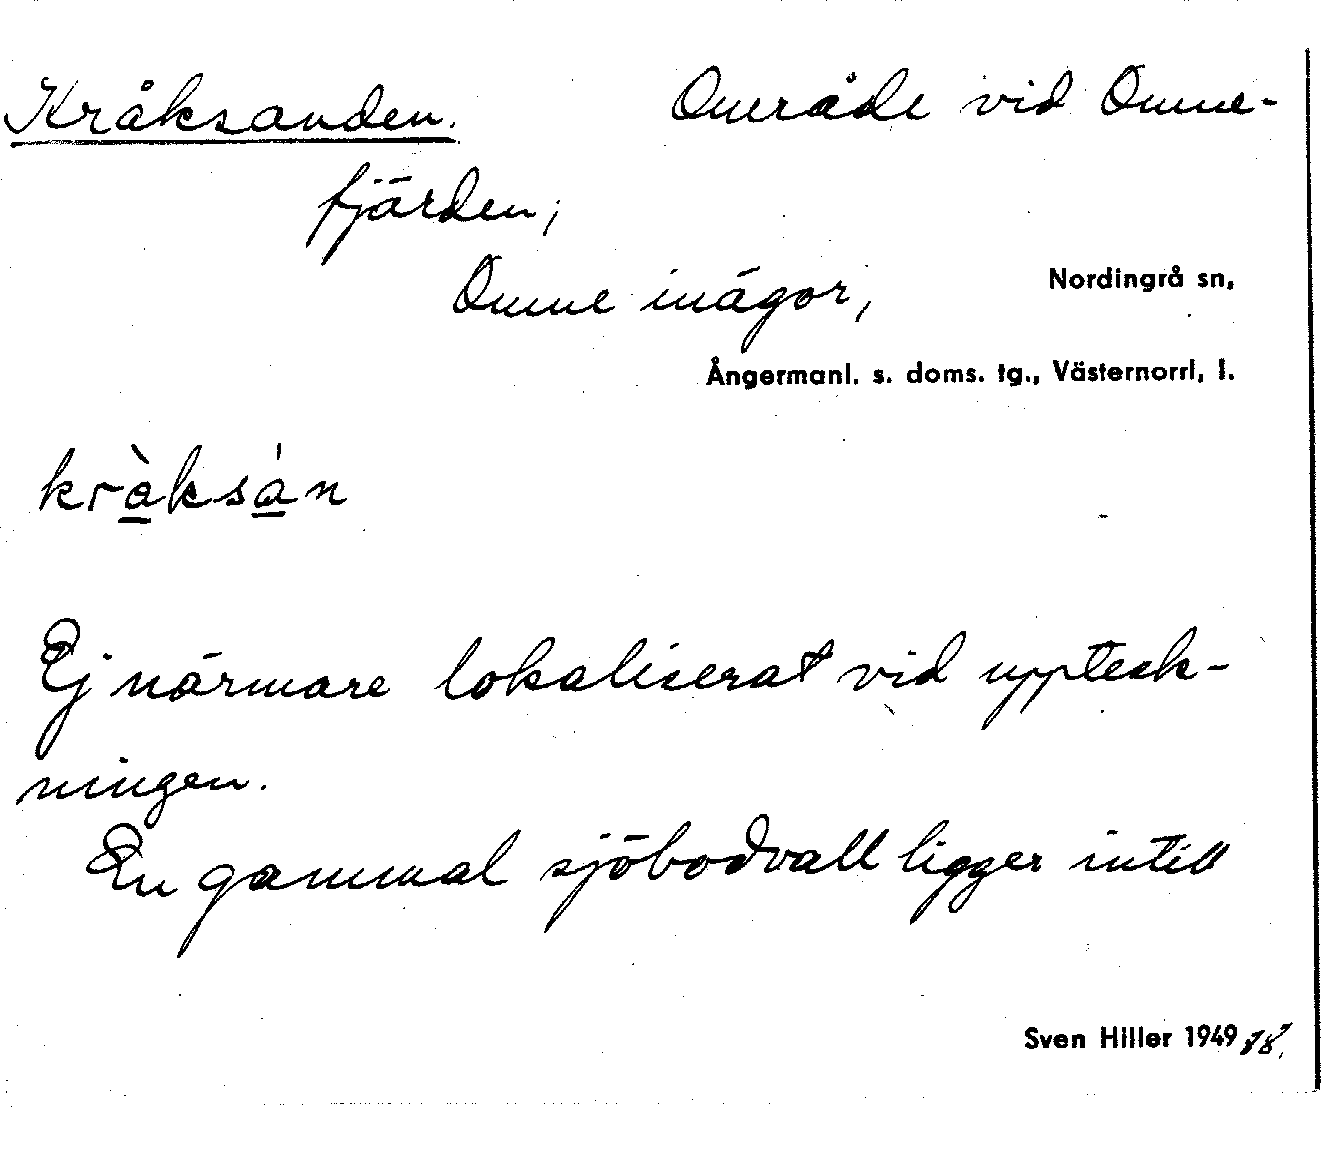 Kråksanden. Område vid Omne-
fjärden;
Omne inägor, Nordingrå sn,
Ångermanl. s. doms. tg., Västernorrl, l.
kràksán
Ej närmare lokaliserat vid uppteck-
ningen.
En gammal sjöbodvall ligger intill
Sven Hiller 1949